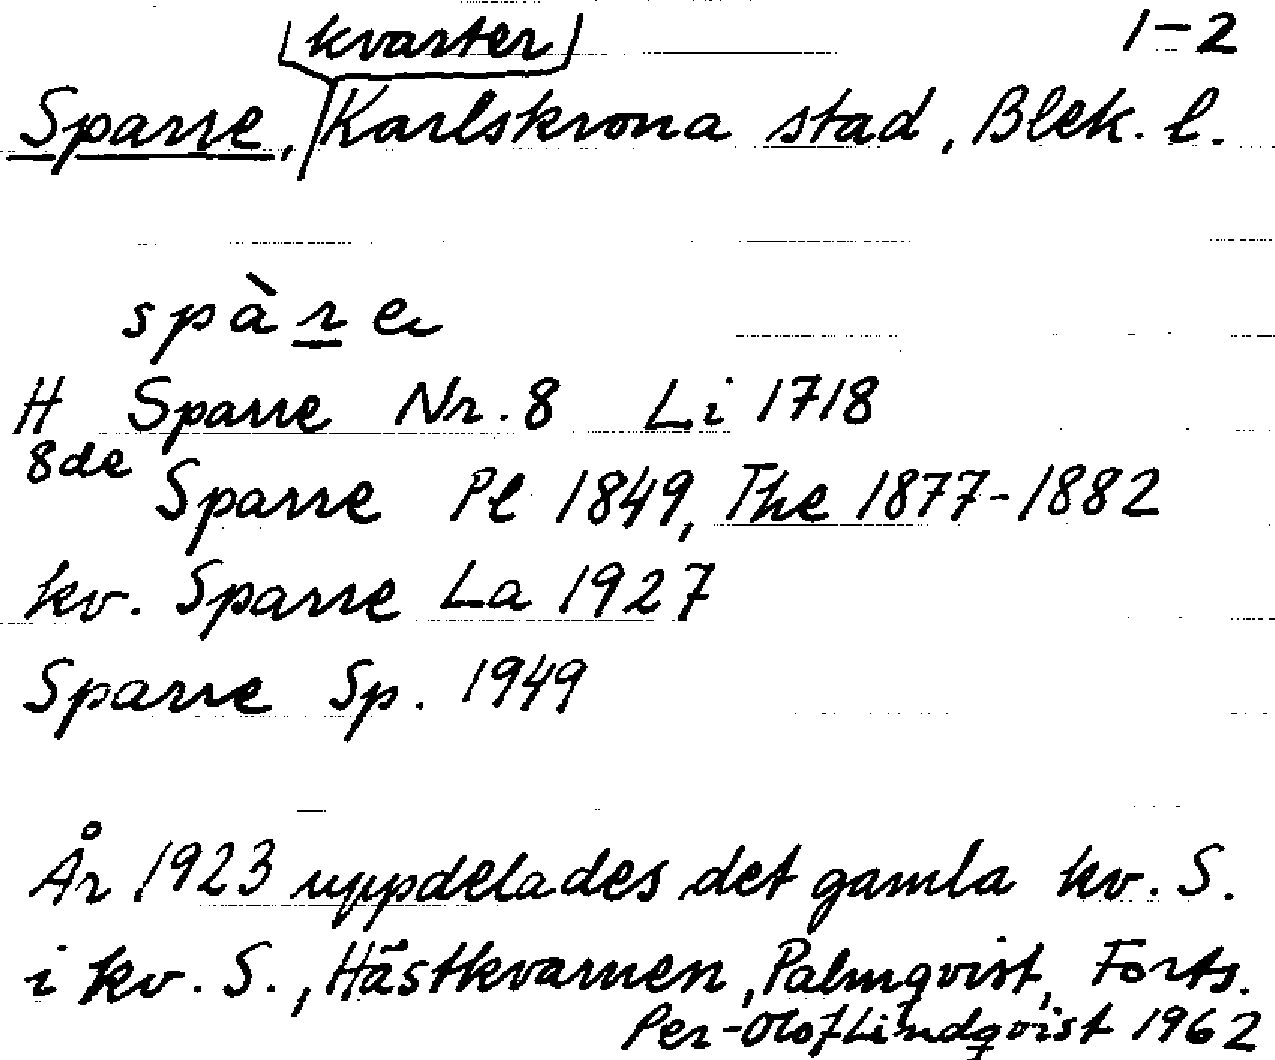 kvarter 1-2
Sparre, Karlskrona stad, Blek. l.
spàre
H Sparre Nr. 8 Li 1718
8de Sparre Pl 1849, The 1877-1882
kv. Sparre La 1927
Sparre Sp. 1949
År 1923 uppdelades det gamla kv. S.
i kv. S., Hästkvarnen, Palmqvist, Forts.
Per-Olof Lindqvist 1962